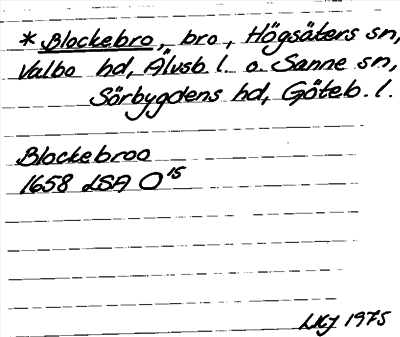 * Blockebro, bro, Högsäters sn,
Valbo hd, Älvsb. l. o. Sanne sn,
Sörbygdens hd, Göteb. l.
Blockebroo
1658 LSA O 15
LKJ 1975